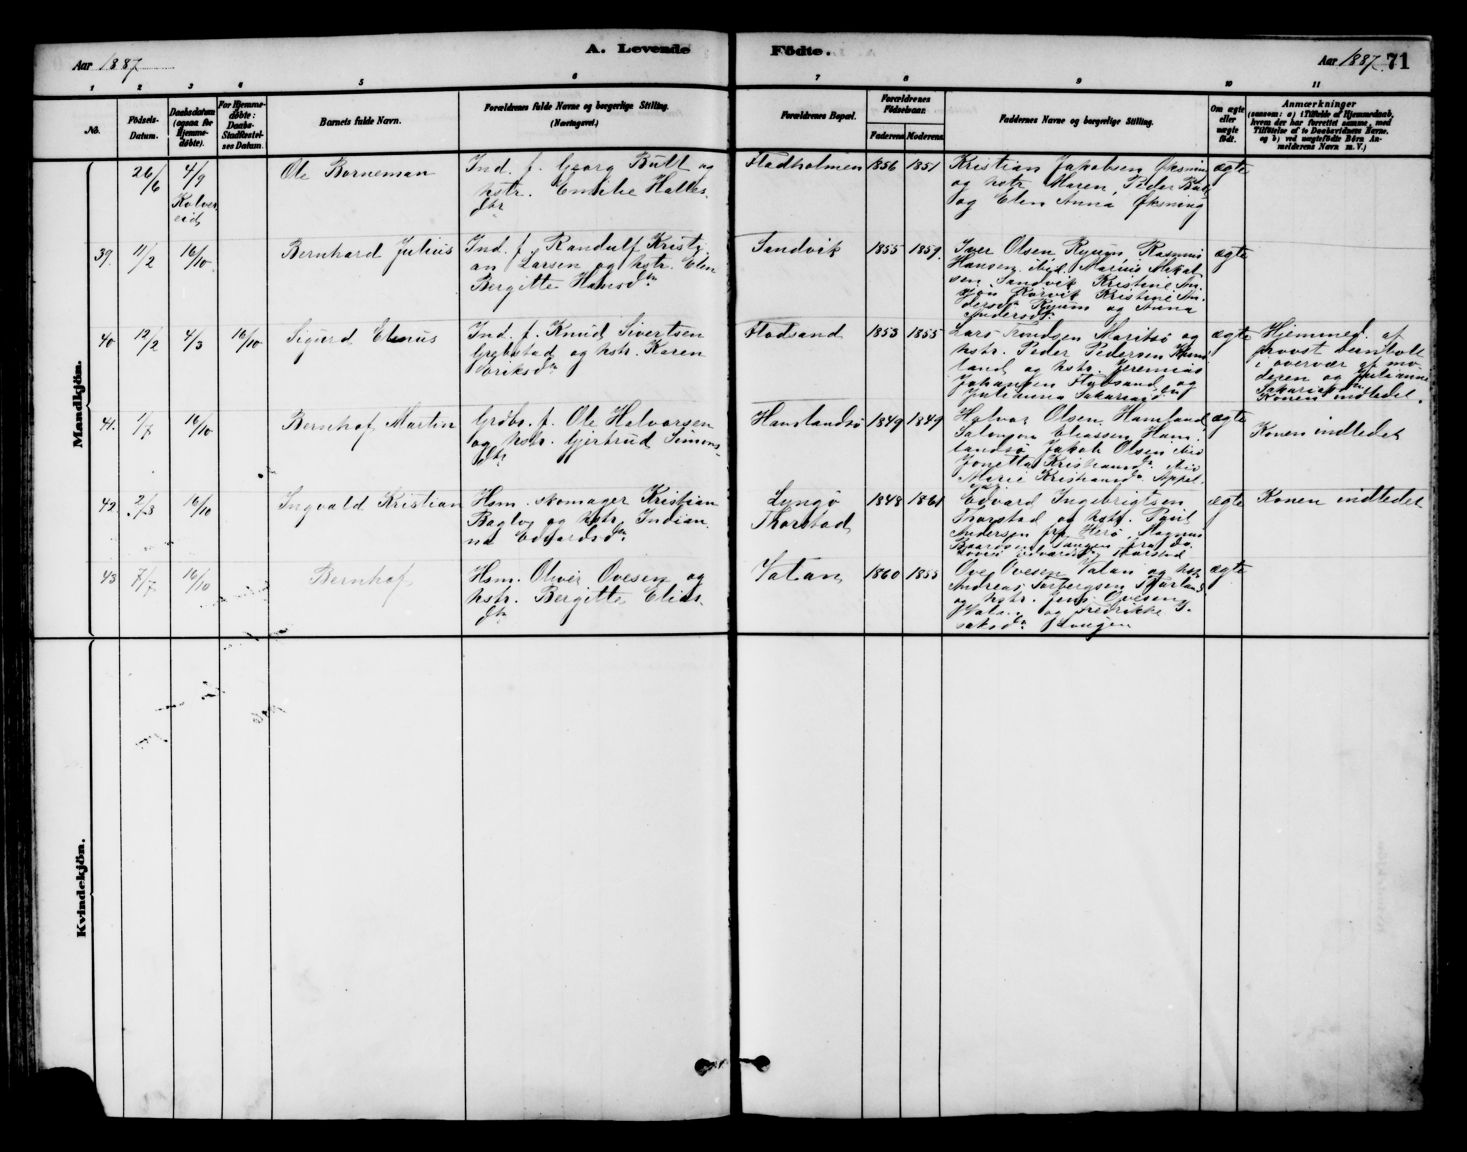 A. Levende Födte.
Aar 1887
Aar 1887. 71
1 2 3 4 5 6 7 8 9 10 11
No.
Födsels-
Datum.
Daabsdatum
(ogsaa for
Hjemme-
döbte).
For Hjemme-
döbte:
Daabs-
Stadfæstel-
ses Datum.
Barnets fulde Navn.
Forældrenes fulde Navne og borgerlige Stilling.
(Næringsvei.)
Forældrenes Bopæl.
Forældrenes
Födselsaar.
Faderens Moderens
Faddernes Navne og borgerlige Stilling.
Om ægte
eller
uægte
födt.
Anmærkninger
(saasom: a) i Tilfælde af Hjemmedaab,
hvem der har forrettet samme, med
Tilföielse af to Daabsvidners Navne,
og b) ved uægtefödte Börn An-
melderens Navn m. V.)
Mandkjön.
26/6 4/9
Kolver
eid
Ole Borneman
Ind. f. Georg Bull og
hstr. Emilie Halles
dtr
Fladholmen 1856 1851
Kristian Jakobsen Øksning
og hstr. Maren, Peder Bull
og Elen Anna Øksning
ægte
39. 11/2 16/10
Bernhard Julius
Ind. f. Randulf Kristi
an Larsen og hstr. Elen
Bergitte Hansdtr
Sandvik 1855 1859.
Iver Olsen Ryum, Rasmus
Hansen ibid. Marius Mikal
sen Sandvik Kristine
Rørvik Kristine An
dersdtr Ryum og Anna
Andersdtr
ægte
40 12/2 4/3 16/10
Sigurd Elenius
Ind. f. Knud Sivertsen
Grebstad og hstr. Karen
Eriksdtr
Flodsand 1853 1855
Lars Knudsen Maritsø og
hstr. Peder Pedersen
land og hstr. Jeremias
Johansen Flodsand og
Julianna Sakariasdtr
ægte
Hjemmed. af
provst
i overvær af mo
deren og Julianna
Sakariasdtr
Konen indledet.
41. 1/7 16/10
Bernhof Martin
Grdbr. f. Ole Halvorsen
og hstr. Gjertrud Simons
dtr
Havstandsø 1849 1849
Halvor Olsen
Salomon Eliassen
landsø Jakob Olsen
Jonetta Kristiansdtr
Marie Kristiansdtr Appel
ægte
Konen indledet
42. 2/3 16/10
Ingvald Kristian
Hsm. skomager Kristian
og hstr. Indian
na Edvardsdtr
Lyngø
Thorstad
1848 1861
Edvard Ingebrigtsen
Thorstad og hstr.
Andersen fra Herø, Magnus
ægte
Konen indledet
43 7/7 16/10
Bernhof
Hsm. Oliver Ovesen og
hstr. Bergitte Elias
dtr
Valan 1860 1855
Ove Ovesen Valan og hstr
Andreas Torbergsen
og hstr. Jens Ovesen
Valan og Fredrikke I
saksdtr
ægte
Kvindekjön.